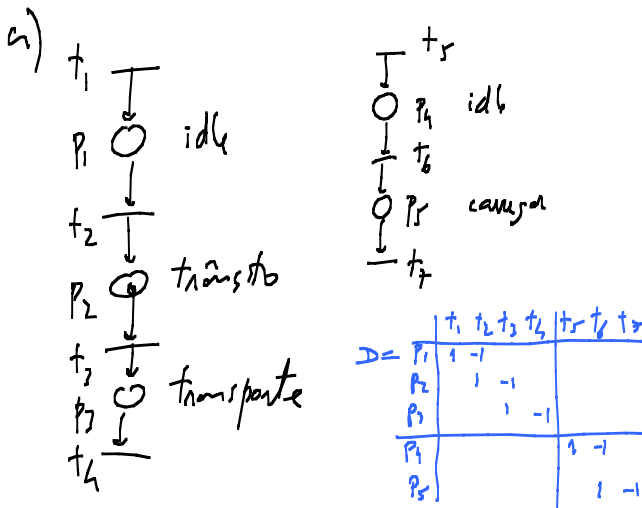 a)
t1
P1 idle
t2
P2 trânsito
t3
P3 transporte
t4
t5
P4 idle
t6
P5
t7
t1 t2 t3 t4 t5 t6 t7
D= P1 1 -1
P2 1 -1
P3 1 -1
P4 1 -1
P5 1 -1